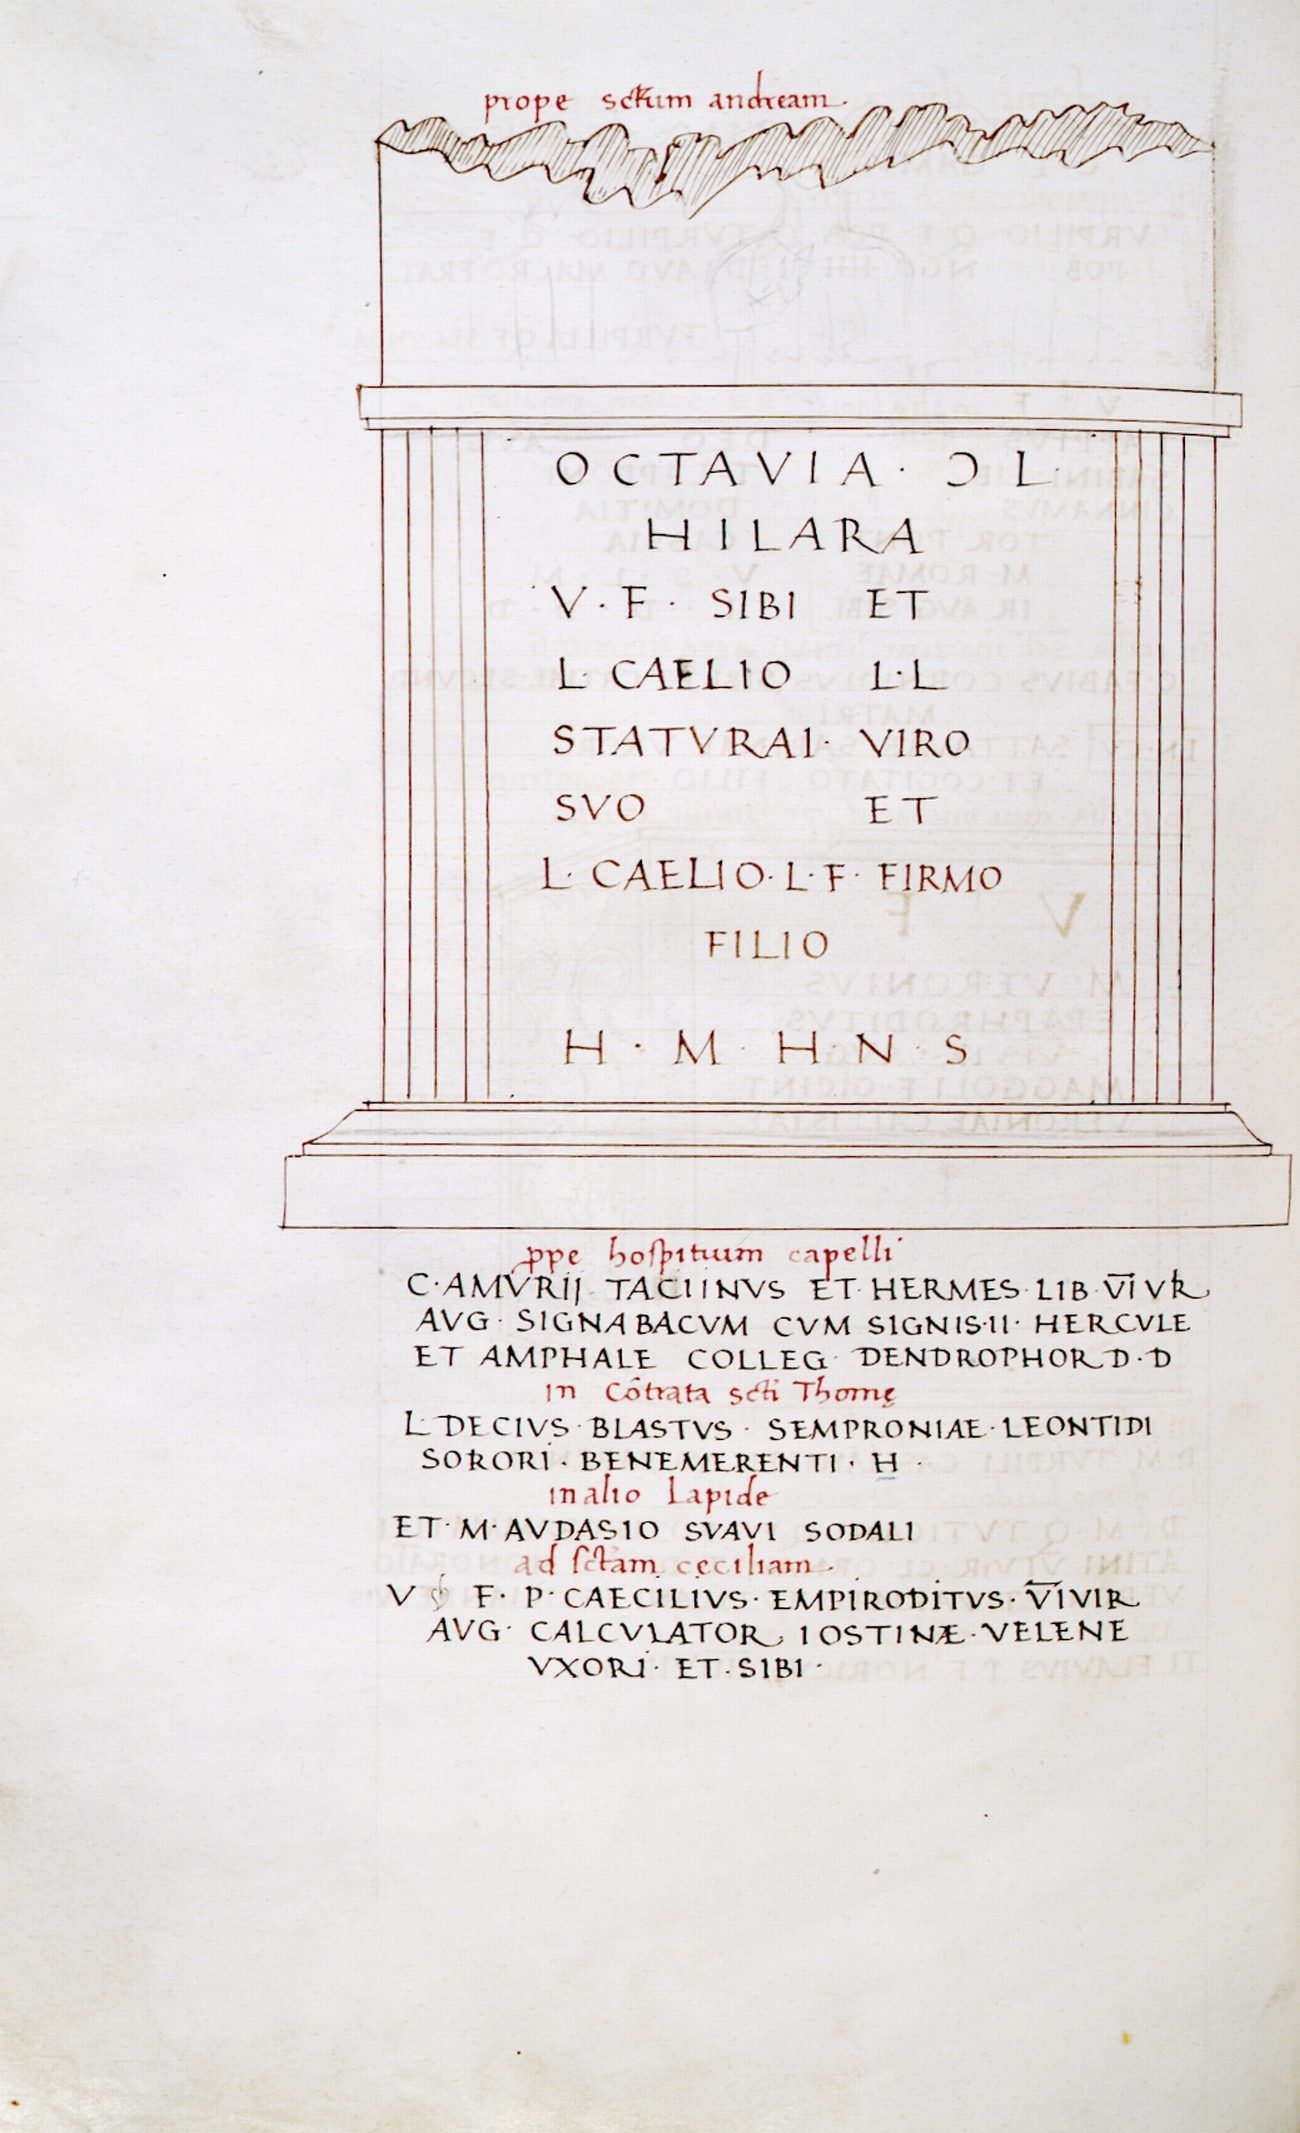 prope sctum andream.
OCTAVIA · Ɔ L ·
HILARA
V · F · SIBI ET
L · CAELIO L · L
STATVRAI · VIRO
SVO ET
L · CAELIO · L · F · FIRMO
FILIO
H · M · H · N · S
ppe hospitium capelli
C · AMVRIJ TACIINVS ET HERMES · LIB V̅I̅ VR
AVG · SIGNA BACVM CVM SIGNIS · II · HERCVLE
ET AMPHALE COLLEG DENDROPHOR D · D
in Cõtrata scti Thomę
L · DECIVS · BLASTVS · SEMPRONIAE · LEONTIDI
SORORI · BENEMERENTI · H ·
in alio Lapide
ET · M · AVDASIO SVAVI SODALI
ad sctam ceciliam.
V ❦ F · P · CAECILIVS · EMPIRODITVS · V̅I̅VIR
AVG · CALCVLATOR IOSTINÆ · VELENE
VXORI · ET · SIBI ·